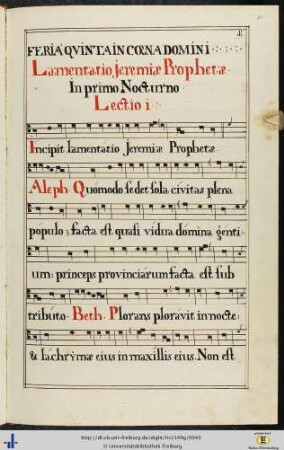 FERIA QVINTA IN CŒNA DOMINI
Lamentatio Jeremiæ Prophetæ
In primo Nocturno
Lectio i
Incipit lamentatio Jeremiæ Prophetæ
Aleph. Quomodo sedet sola civitas plena
populo: facta est quasi vidua domina genti-
um: princeps provinciarum facta est sub
tributo. Beth. Plorans ploravit in nocte:
& lachrymæ eius in maxillis eius. Non est
http://dl.ub.uni-freiburg.de/diglit/hs1149g/0043
© Universitätsbibliothek Freiburg